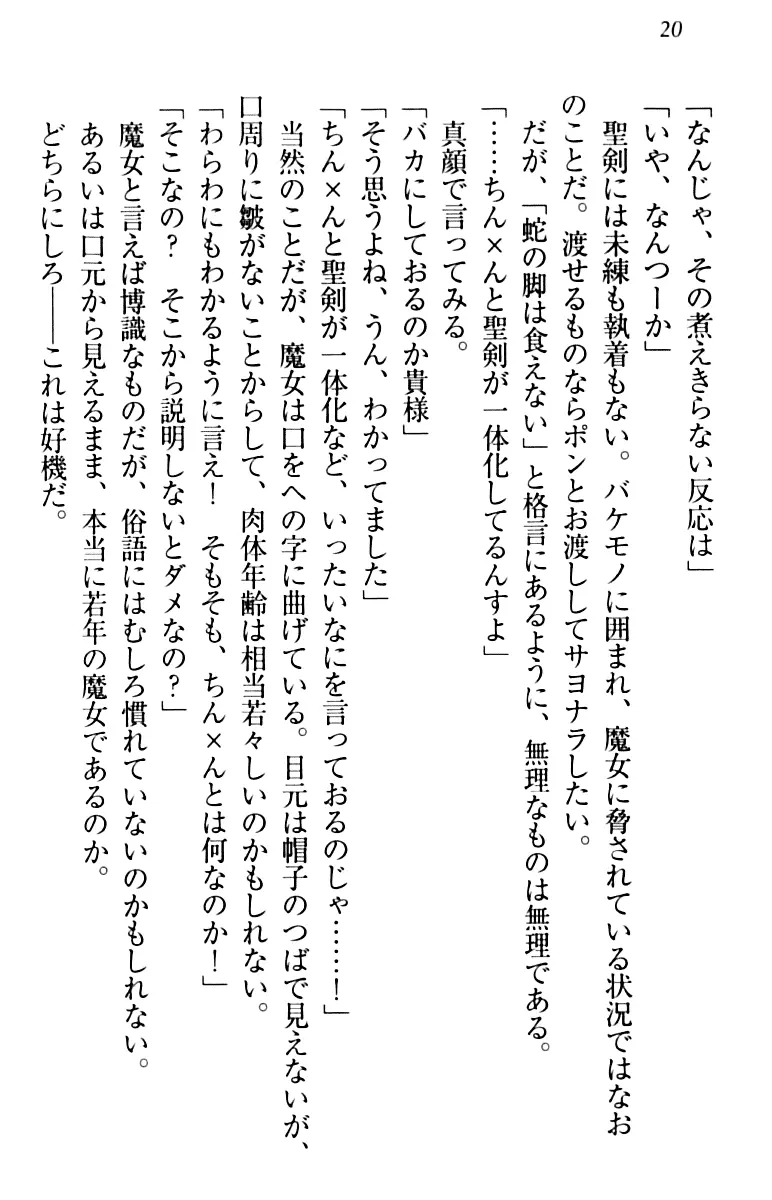 20
「なんじゃ、その煮えきらない反応は」
「いや、なんつーか」
聖剣には未練も執着もない。バケモノに囲まれ、魔女に脅されている状況ではなお
のことだ。渡せるものならポンとお渡ししてサヨナラしたい。
だが、「蛇の脚は食えない」と格言にあるように、無理なものは無理である。
「……ちん×んと聖剣が一体化してるんすよ」
真顔で言ってみる。
「バカにしておるのか貴様」
「そう思うよね、うん、わかってました」
「ちん×んと聖剣が一体化など、いったいなにを言っておるのじゃ……！」
当然のことだが、魔女は口をへの字に曲げている。目元は帽子のつばで見えないが、
口周りに皺がないことからして、肉体年齢は相当若々しいのかもしれない。
「わらわにもわかるように言え！　そもそも、ちん×んとは何なのか！」
「そこなの？　そこから説明しないとダメなの？」
魔女と言えば博識なものだが、俗語にはむしろ慣れていないのかもしれない。
あるいは口元から見えるまま、本当に若年の魔女であるのか。
どちらにしろ――これは好機だ。